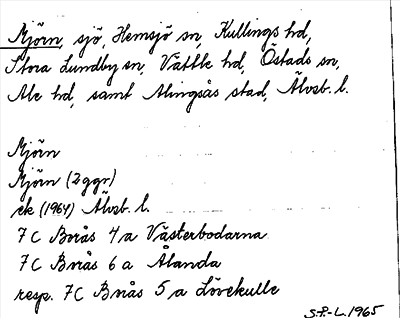 Mjörn, sjö, Hemsjö sn, Kullings hd,
Stora Lundby sn, Vättle hd, Östads sn,
Ale hd, samt Alingsås stad, Älvsb. l.
Mjörn
Mjörn (2 ggr)
ek (1964) Älvsb. l.
7C Borås 4 a Västerbodarna
7C Borås 6 a Ålanda
resp. 7C Borås 5 a Lövekulle
S.P.-L. 1965